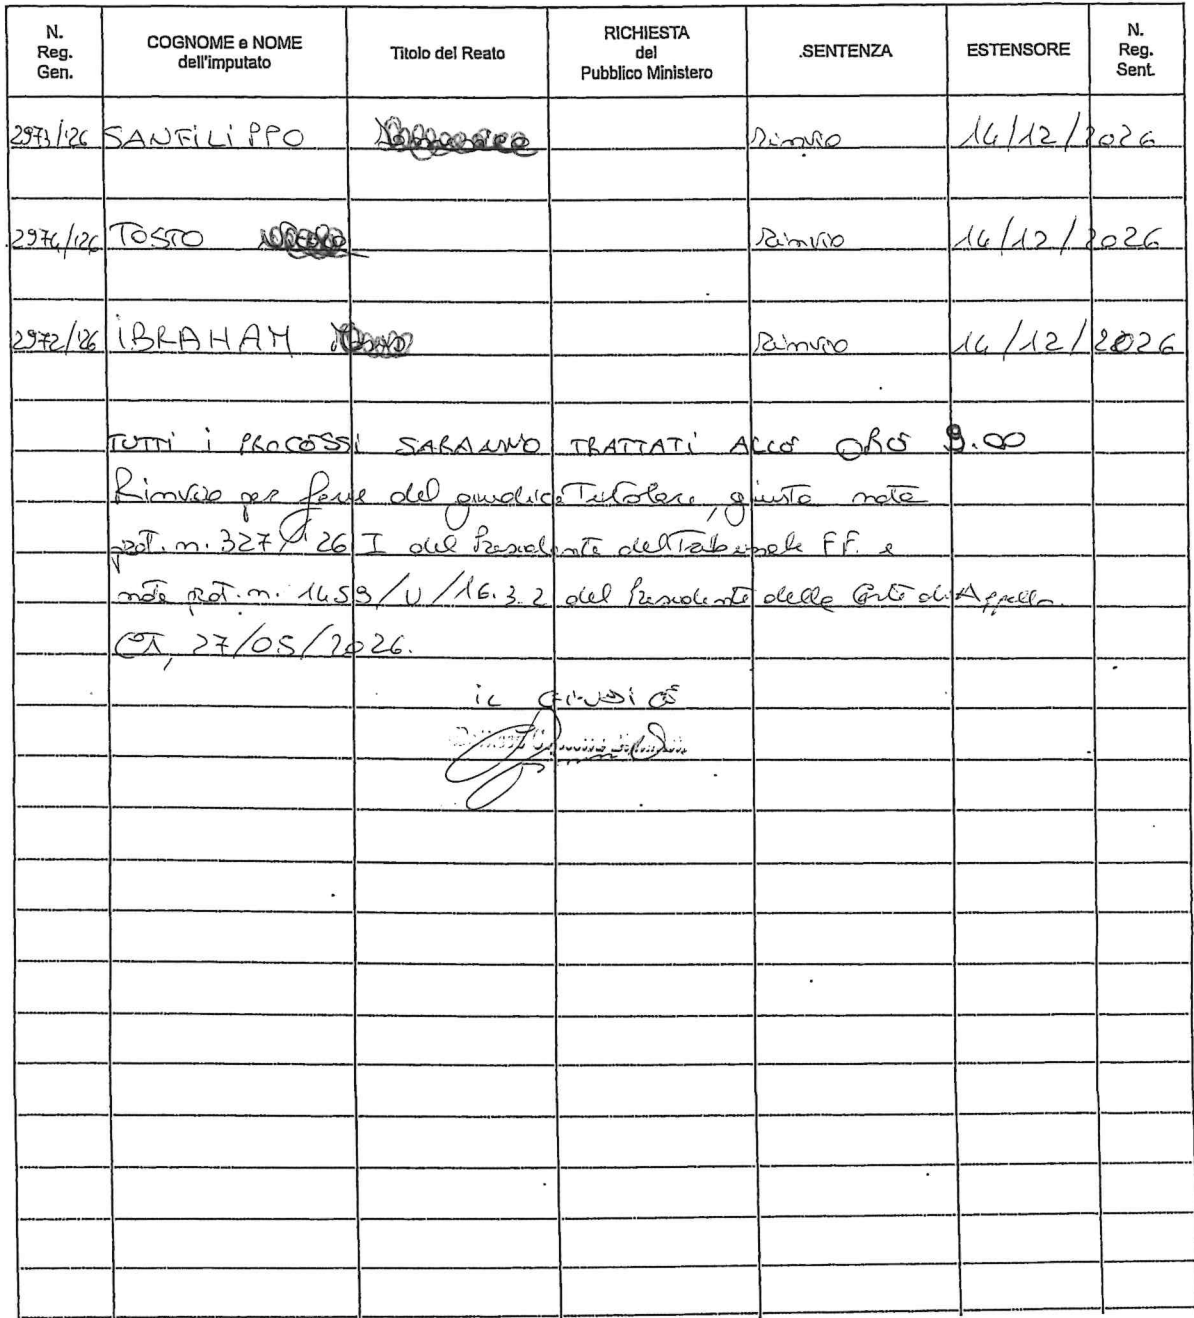 N. Reg. Gen. COGNOME e NOME dell'imputato Titolo del Reato RICHIESTA del Pubblico Ministero SENTENZA ESTENSORE N. Reg. Sent.
2973/'26 SANFILIPPO Rinvio 14/12/2026
2974/'26 TOSTO Rinvio 14/12/2026
2972/'26 IBRAHAM Rinvio 14/12/2026
TUTTI I PROCESSI SARANNO TRATTATI ALLE ORE 9.00
Rinvio per ferie del giudice Titolare, giusta nota
prot. n. 327/'26 I del Presidente del Tribunale FF. e
nota prot. n. 1459/U/16.3.2 del Presidente della Corte di Appello.
CT, 27/05/2026.
IL GIUDICE